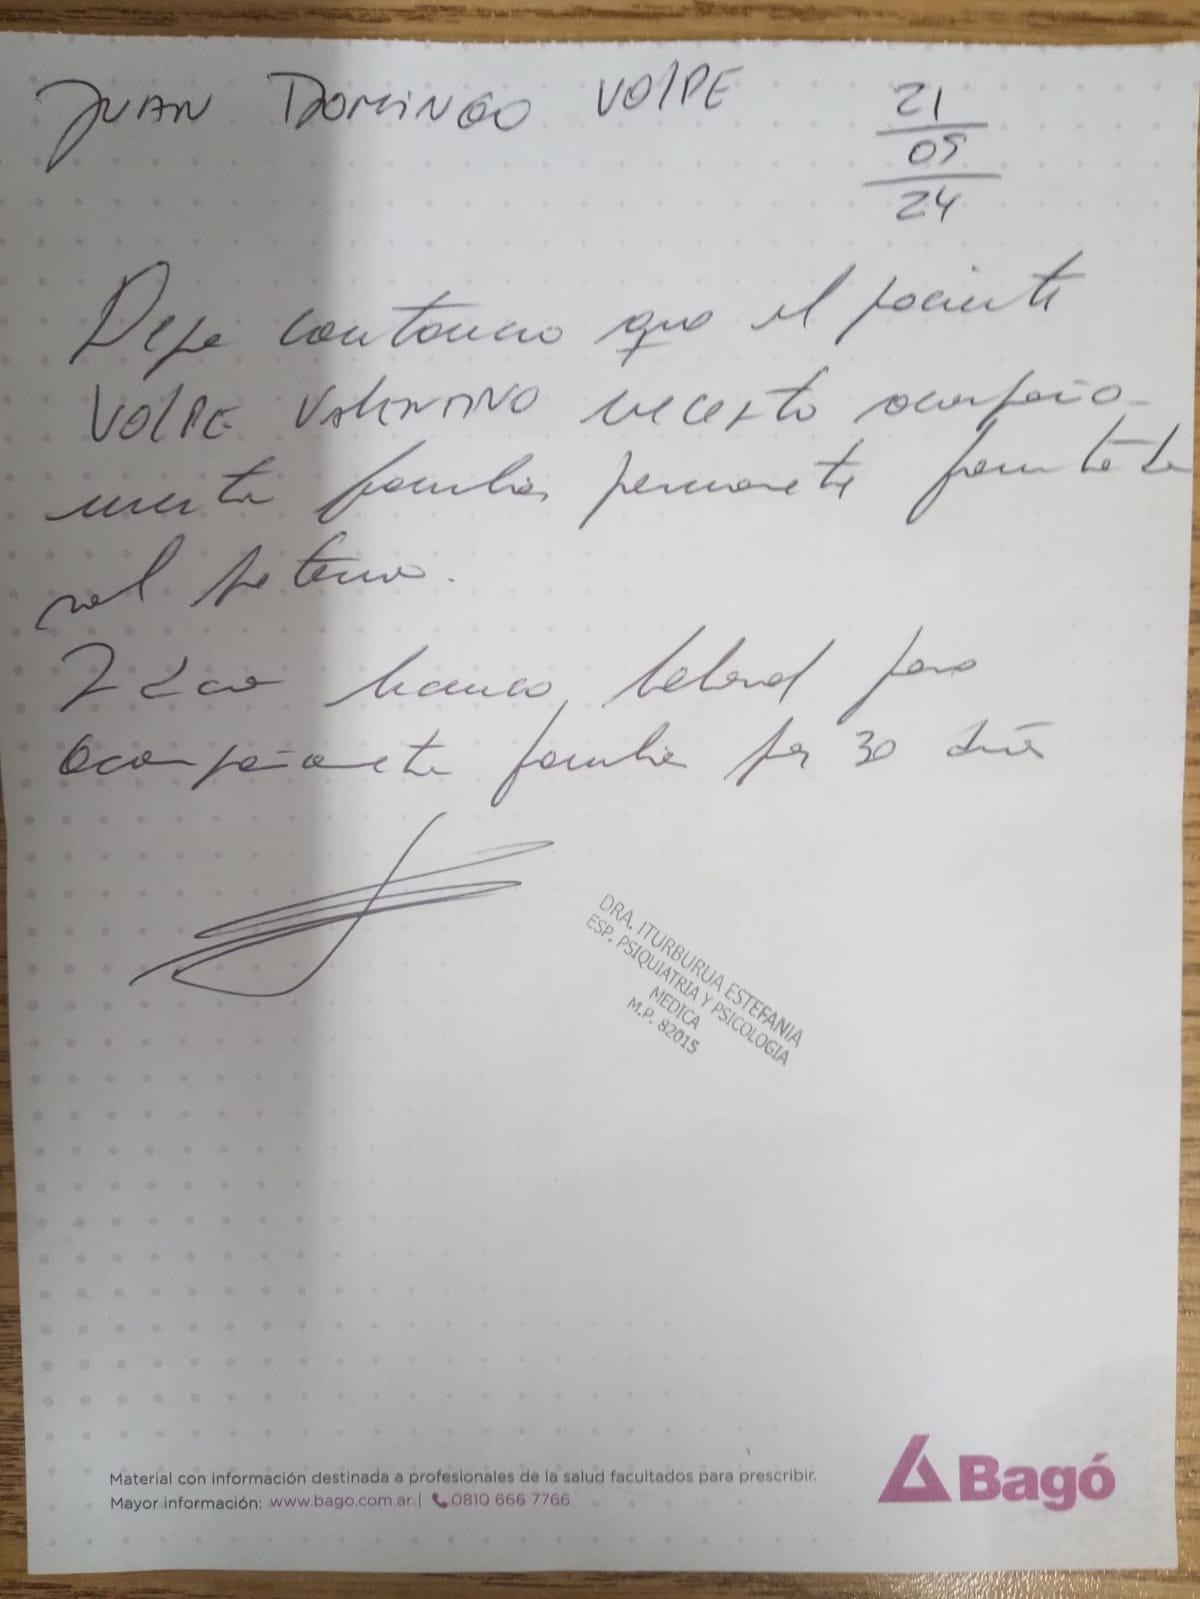 JUAN DOMINGO VOLPE
21
05
24
Dejo constancia que el paciente
VOLPE VALENTINO necesita acompaña-
miento familiar permanente
paterno.
licencia laboral para
acompañamiento familiar por 30 días
DRA. ITURBURUA ESTEFANIA
ESP. PSIQUIATRIA Y PSICOLOGIA
MEDICA
M.P. 82015
Material con información destinada a profesionales de la salud facultados para prescribir.
Mayor información: www.bago.com.ar | 0810 666 7766
Bagó